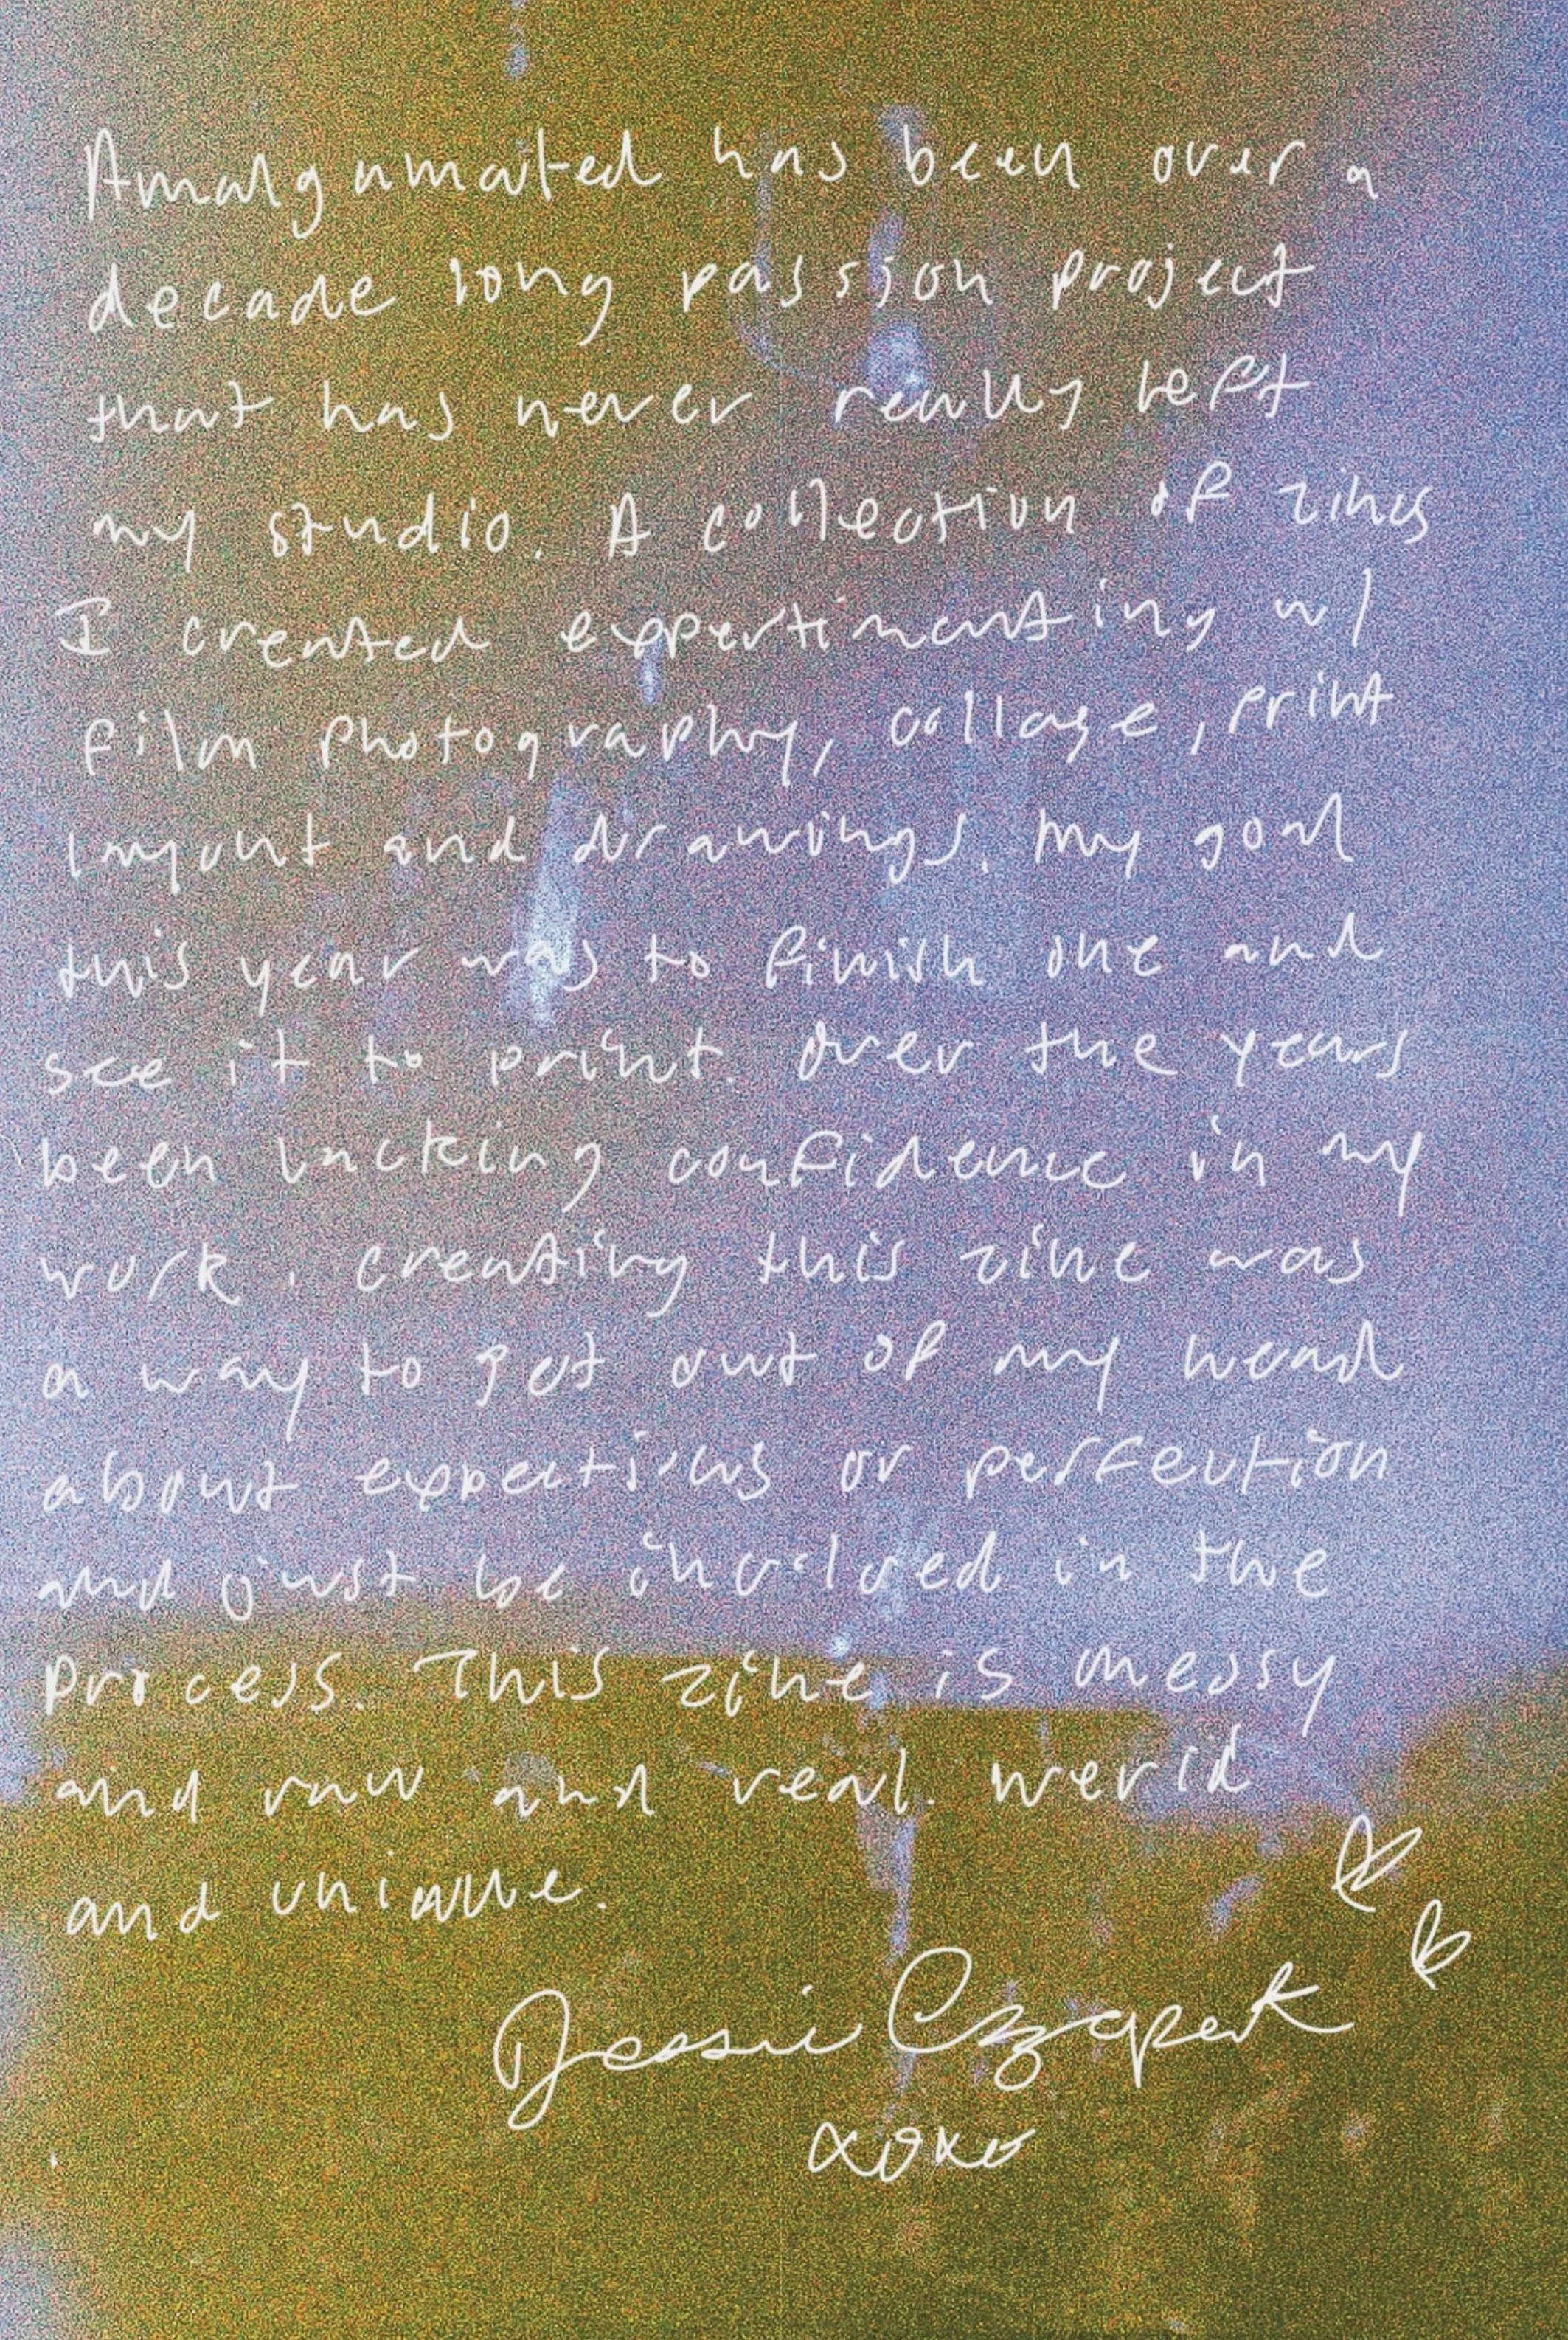 Amalgamated has been over a
decade long passion project
that has never really left
my studio. A collection of zines
I created expertimenting w/
film photography, collage, print
layout and drawings. My goal
this year was to finish one and
see it to print. Over the years
been lacking confidence in my
work. creating this zine was
a way to get out of my head
about expections or perfection
and just be involved in the
process. This zine is messy
and raw and real. werid
and unique.
Jessie Czapek
xoxo